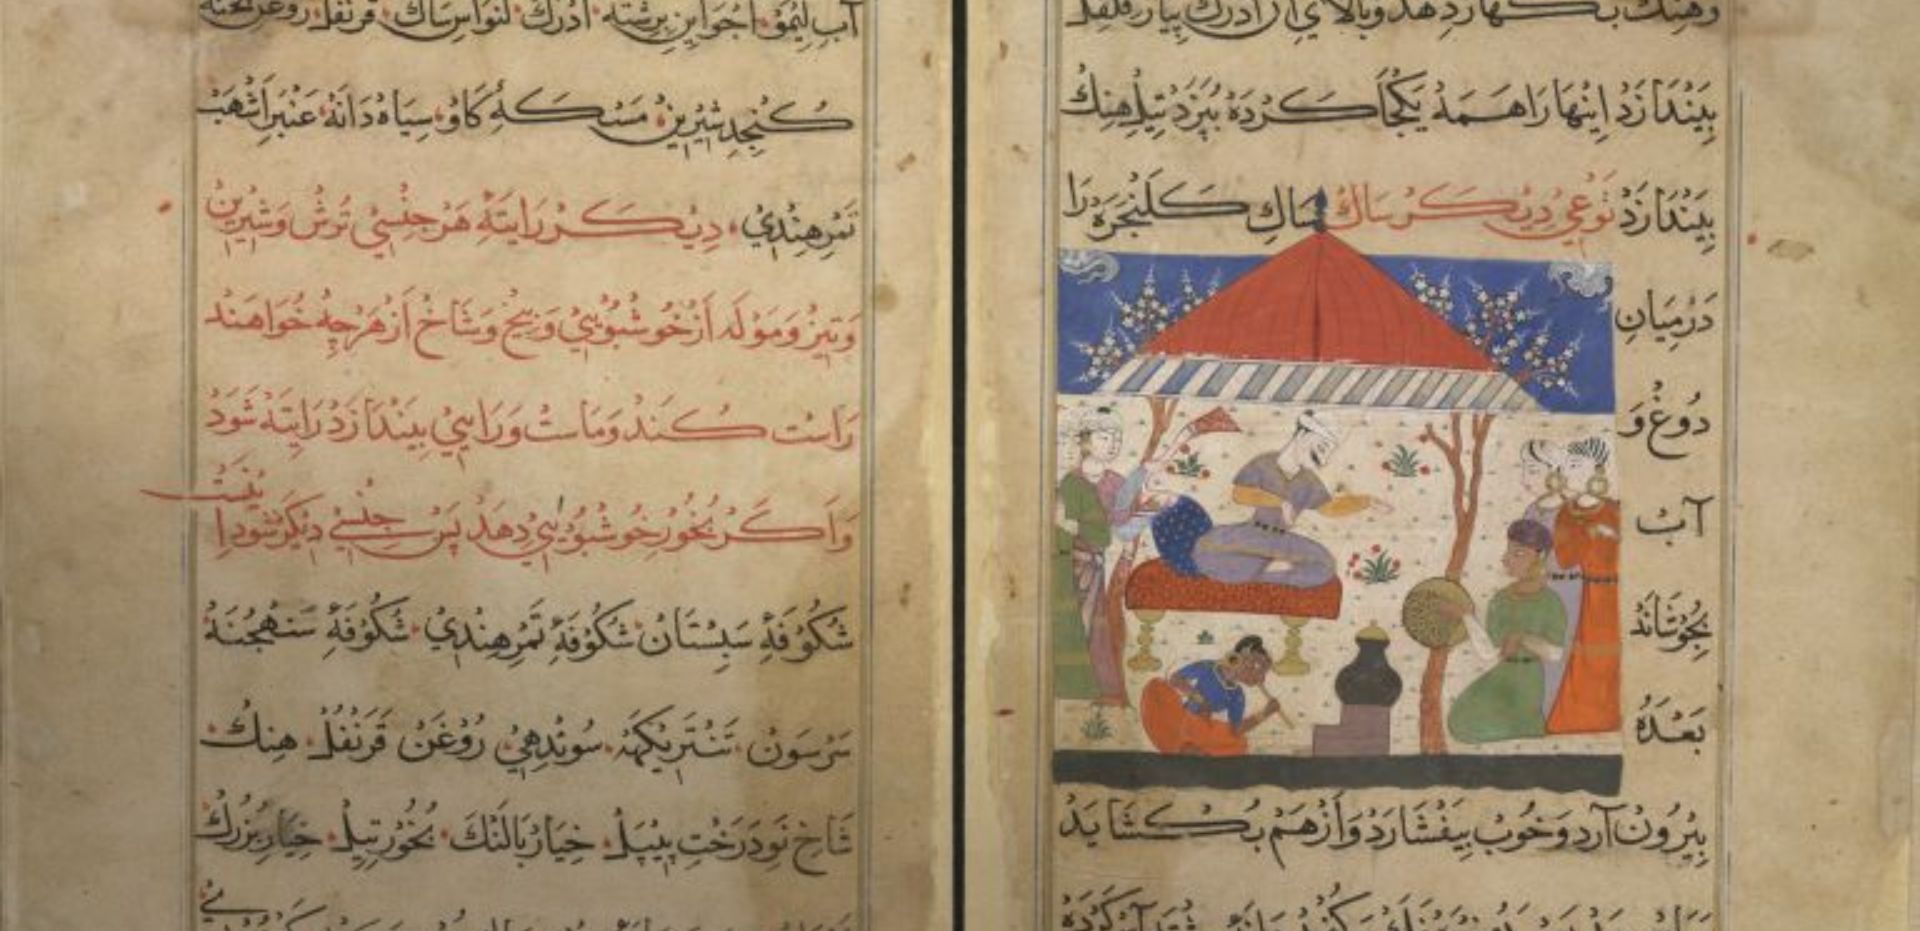 وهنك بکهار دهد و بالای آن ادرك پیاز فلفل
بِیَندَازَد اِینهَا رَا هَمَهْ یَکْجَا کَرْدَهْ بِپَزَدْ تِیلِ هِنك
بِیَندَازَد نَوْعِی دِیکَرْ سَاكْ سَاكِ کَلَنْجَرَه رَا
دَرْ مِیَانِ
دُوغْ وَ
آبْ
بِجُوشَانَدْ
بَعْدَهُ
بِیرُونْ آرد وَخُوبْ بِیَفْشَارَدْ وَازْهَمْ بِکُشَایَدْ
آبِ لیمو، اجواین برشته، ادرك، قرنفل، روغن
کُنْجِدِ شِیرِینْ، مَسْکَهٔ کَاوْ، سِیَاهْ دَانَهْ، عَنْبَرِ اَشْهَبْ
تَمَرِ هِنْدِیْ، دِیکَرْ رَایتَهْ هَرْ جِنْسِیْ تُرشْ وَشِیرِینْ
وَتِیزْ وَمَوْلَه اَزْ خُوشْبُویِیْ وَبِیخْ وَشَاخْ اَزْ هَرْچِهْ خُوَاهَنْدْ
رَاستْ کُنَنْدْ وَمَاسْتْ وَرَاییْ بِیَنْدَازَدْ رَایتَهْ شَوَدْ
وَاَکَرْ بُخُورِ خُوشْبُویِیْ دِهَدْ پَسْ جِنْسِیْ دِیکَرْ شَوَد
شُکُوفَهٔ سَپِسْتَانْ، شُکُوفَهٔ تَمَرِ هِنْدِیْ، شُکُوفَهٔ سَنْهَجنَهْ
سَرْسَونْ، سُونْدِهِیْ، رُوغَنْ قَرَنْفُلْ، هِنكْ،
شَاخِ نَو دَرَخْتِ پِیْپَلْ، خِیَارْ بَالَنْكْ، بُخُورْ تِیلْ، خِیَارِ بُزُرْكْ